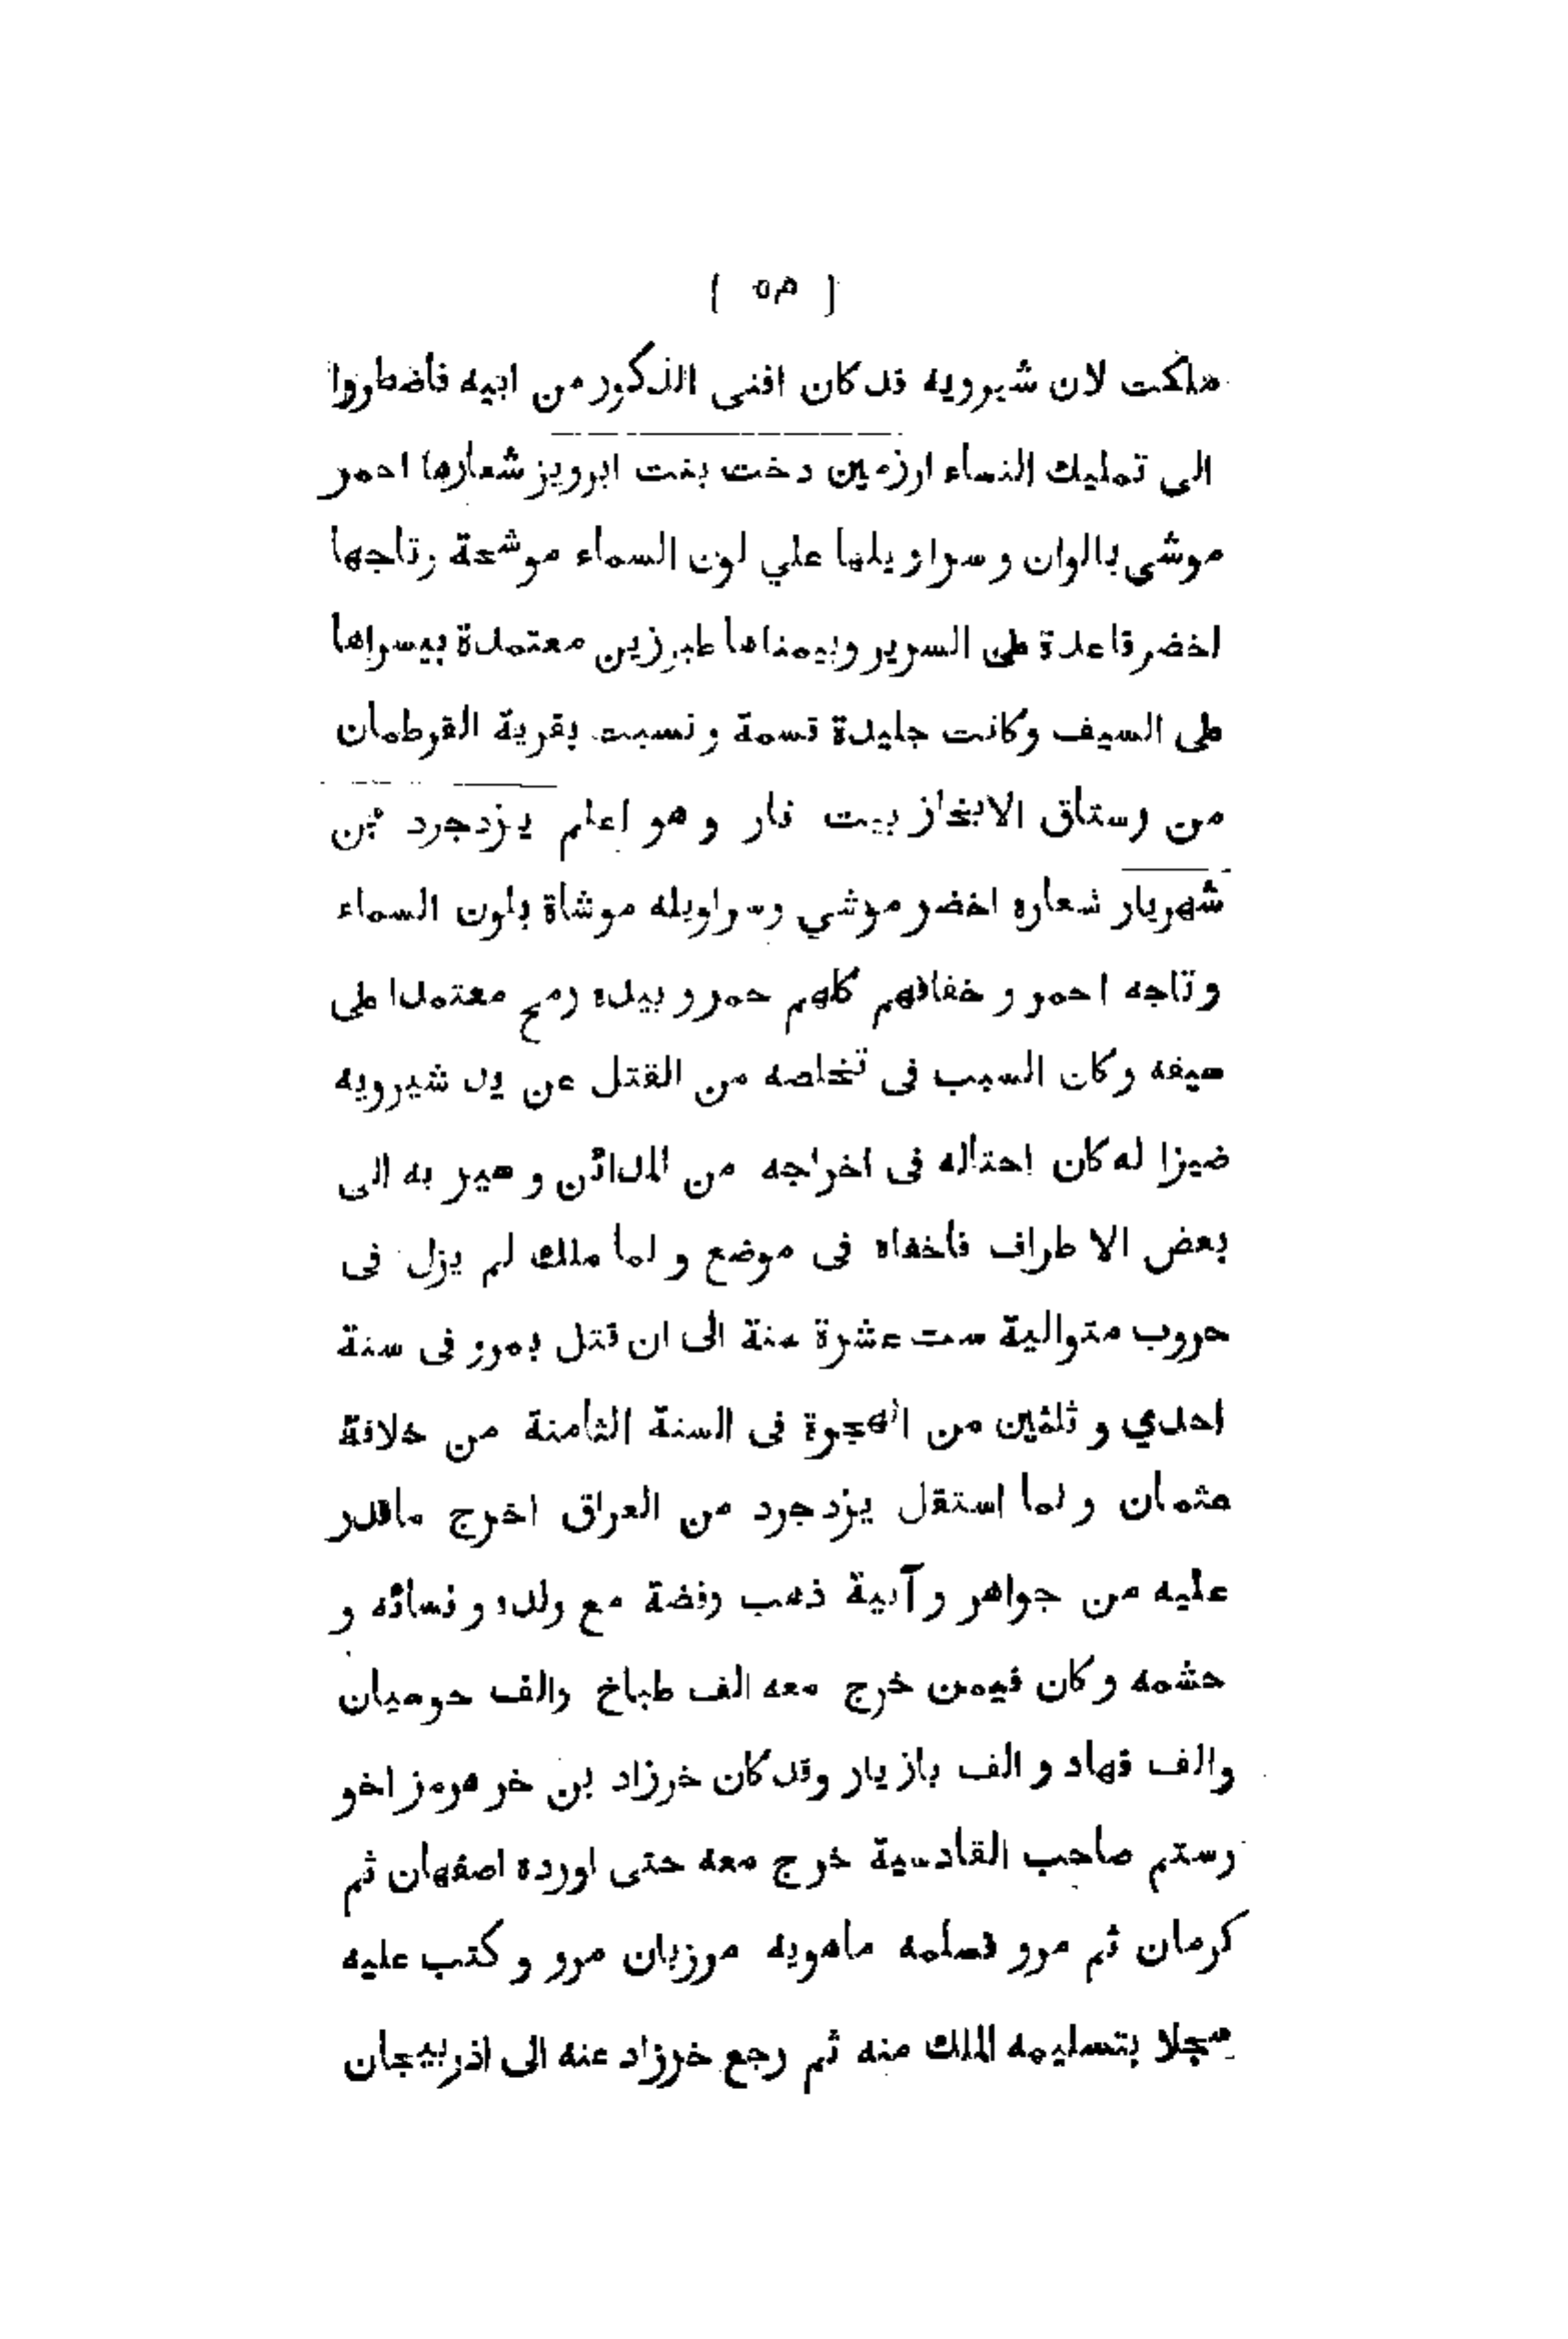 ( ٥٣ )
ملكت لان شيرويه قد كان افنى الذكور من ابيه فاضطروا
الى تمليك النساء ارزمين دخت بنت ابرويز شعارها احمر
موشى بالوان و سراويلها علي لون السماء موشحة وتاجها
اخضر قاعدة على السرير وبيمناها طبرزين معتمدة بيسراها
على السيف وكانت جليدة قسمة و نسبت بقرية القرطمان
من رستاق الابخاز بيت نار و هو اعلم يزدجرد بن
شهريار شعاره اخضر موشي وسراويله موشاة بلون السماء
وتاجه احمر و خفافهم كلهم حمر و بيده رمح معتمدا على
سيفه وكان السبب فى تخلصه من القتل عن يد شيرويه
ضيزا له كان احتاله فى اخراجه من المدائن و سير به الى
بعض الاطراف فاخفاه فى موضع و لما ملك لم يزل فى
حروب متوالية ست عشرة سنة الى ان قتل بمرو فى سنة
احدي و ثلثين من الهجرة فى السنة الثامنة من خلافة
عثمان و لما استقل يزدجرد من العراق اخرج ماقدر
عليه من جواهر و آنية ذهب وفضة مع ولده و نسائه و
حشمه و كان فيمن خرج معه الف طباخ والف حوسيان
والف فهاد و الف بازيار وقد كان خرزاد بن خر هرمز اخو
رستم صاحب القادسية خرج معه حتى اورده اصفهان ثم
كرمان ثم مرو فسلمه ماهويه مرزبان مرو و كتب عليه
سجلا بتسليمه الملك منه ثم رجع خرزاد عنه الى اذربيجان